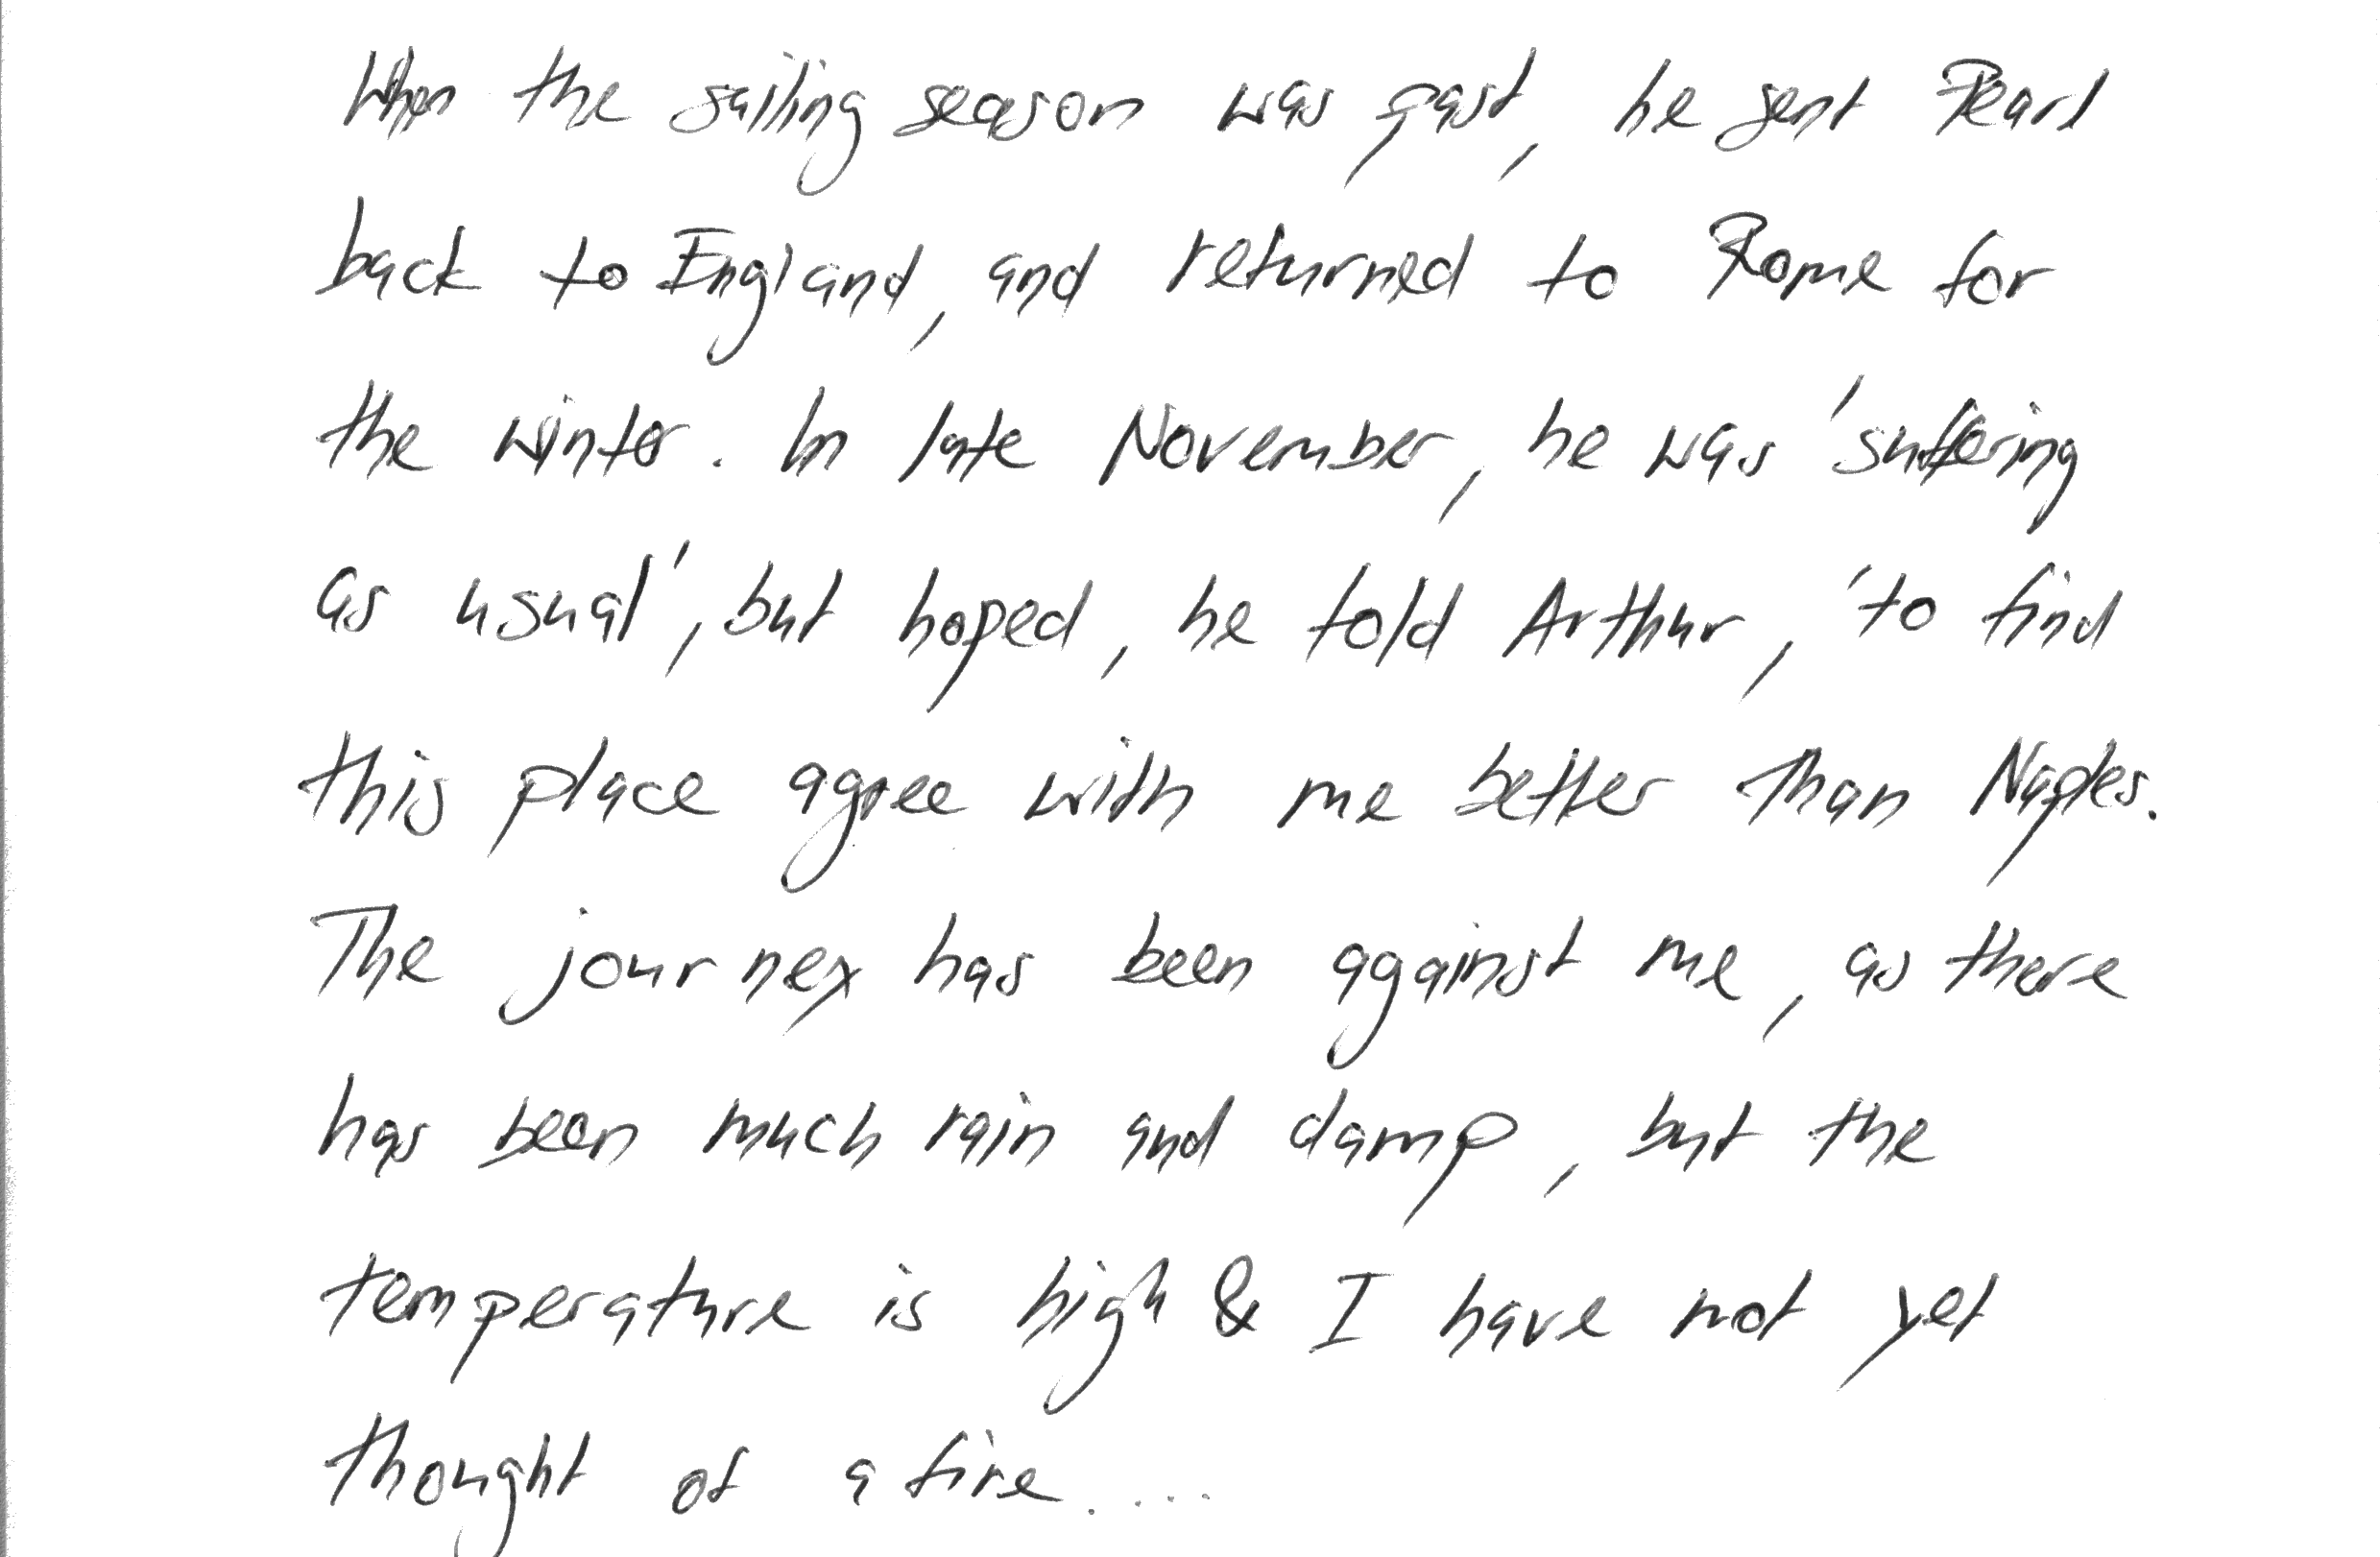 When the sailing season was past, he sent Pearl
back to England, and returned to Rome for
the winter. In late November, he was 'suffering
as usual', but hoped, he told Arthur, 'to find
this place agree with me better than Naples.
The journey has been against me, as there
has been much rain and damp, but the
temperature is high & I have not yet
thought of a fire....